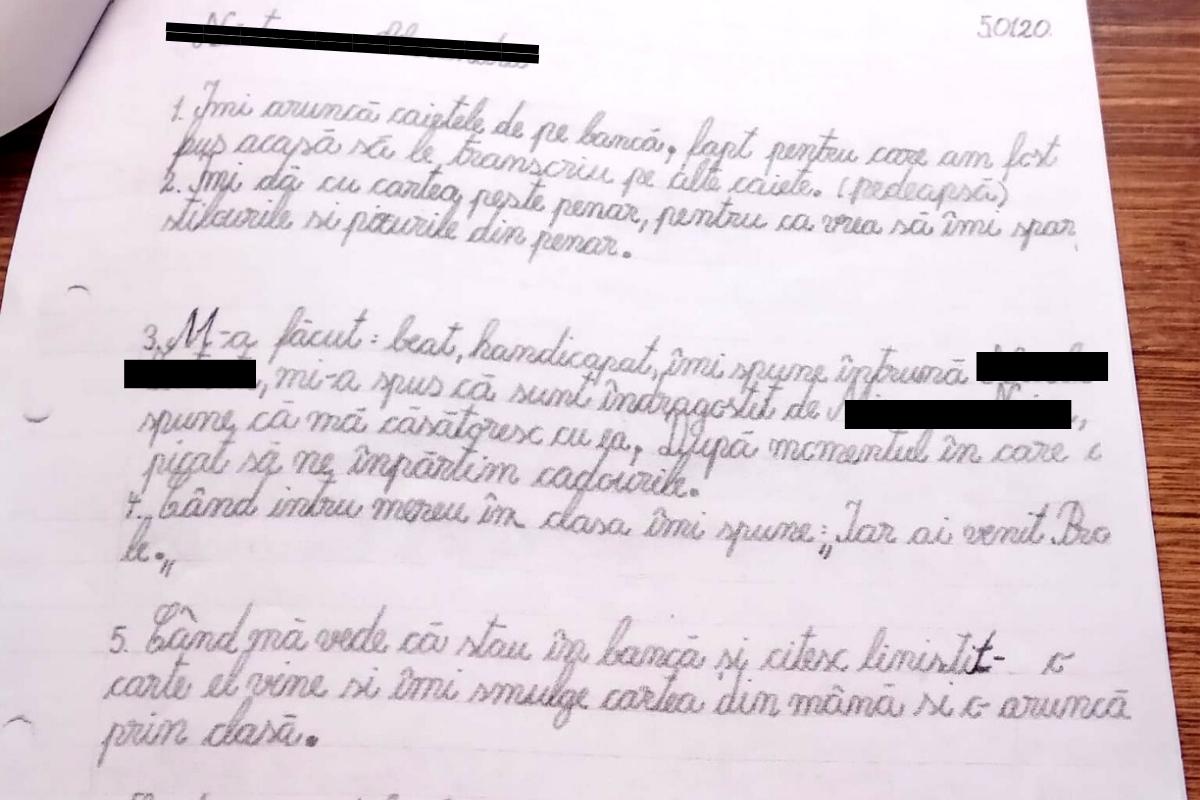 50120
1. Imi aruncă caietele de pe bancă, fapt pentru care am fost
pus acasă să le transcriu pe alte caiete. (pedeapsă)
2. Imi dă cu cartea peste penar, pentru ca vrea să îmi spar
stilourile si picurile din penar.
3. M-a făcut: beat, handicapat, îmi spune întrună
, mi-a spus că sunt îndragostit de
spune că mă căsătoresc cu ea. După momentul în care o
picat să ne împărtim cadourile.
4. Când intru mereu în clasa îmi spune: „Iar ai venit Bro
le.„
5. Când mă vede că stau în bancă și citesc linistit- o
carte el vine si îmi smulge cartea din mână si o aruncă
prin clasă.